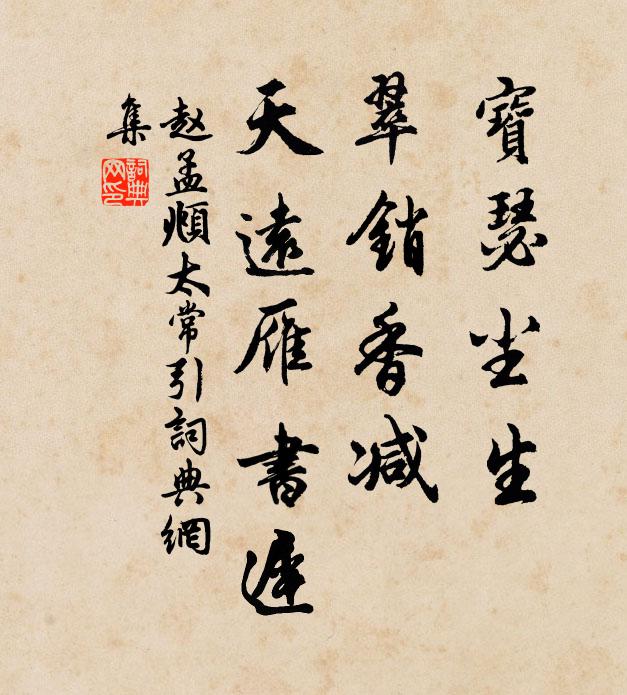 寶瑟尘生
翠銷香减
天遠雁書遲
赵孟頫太常引詞典網
集
詞典网印